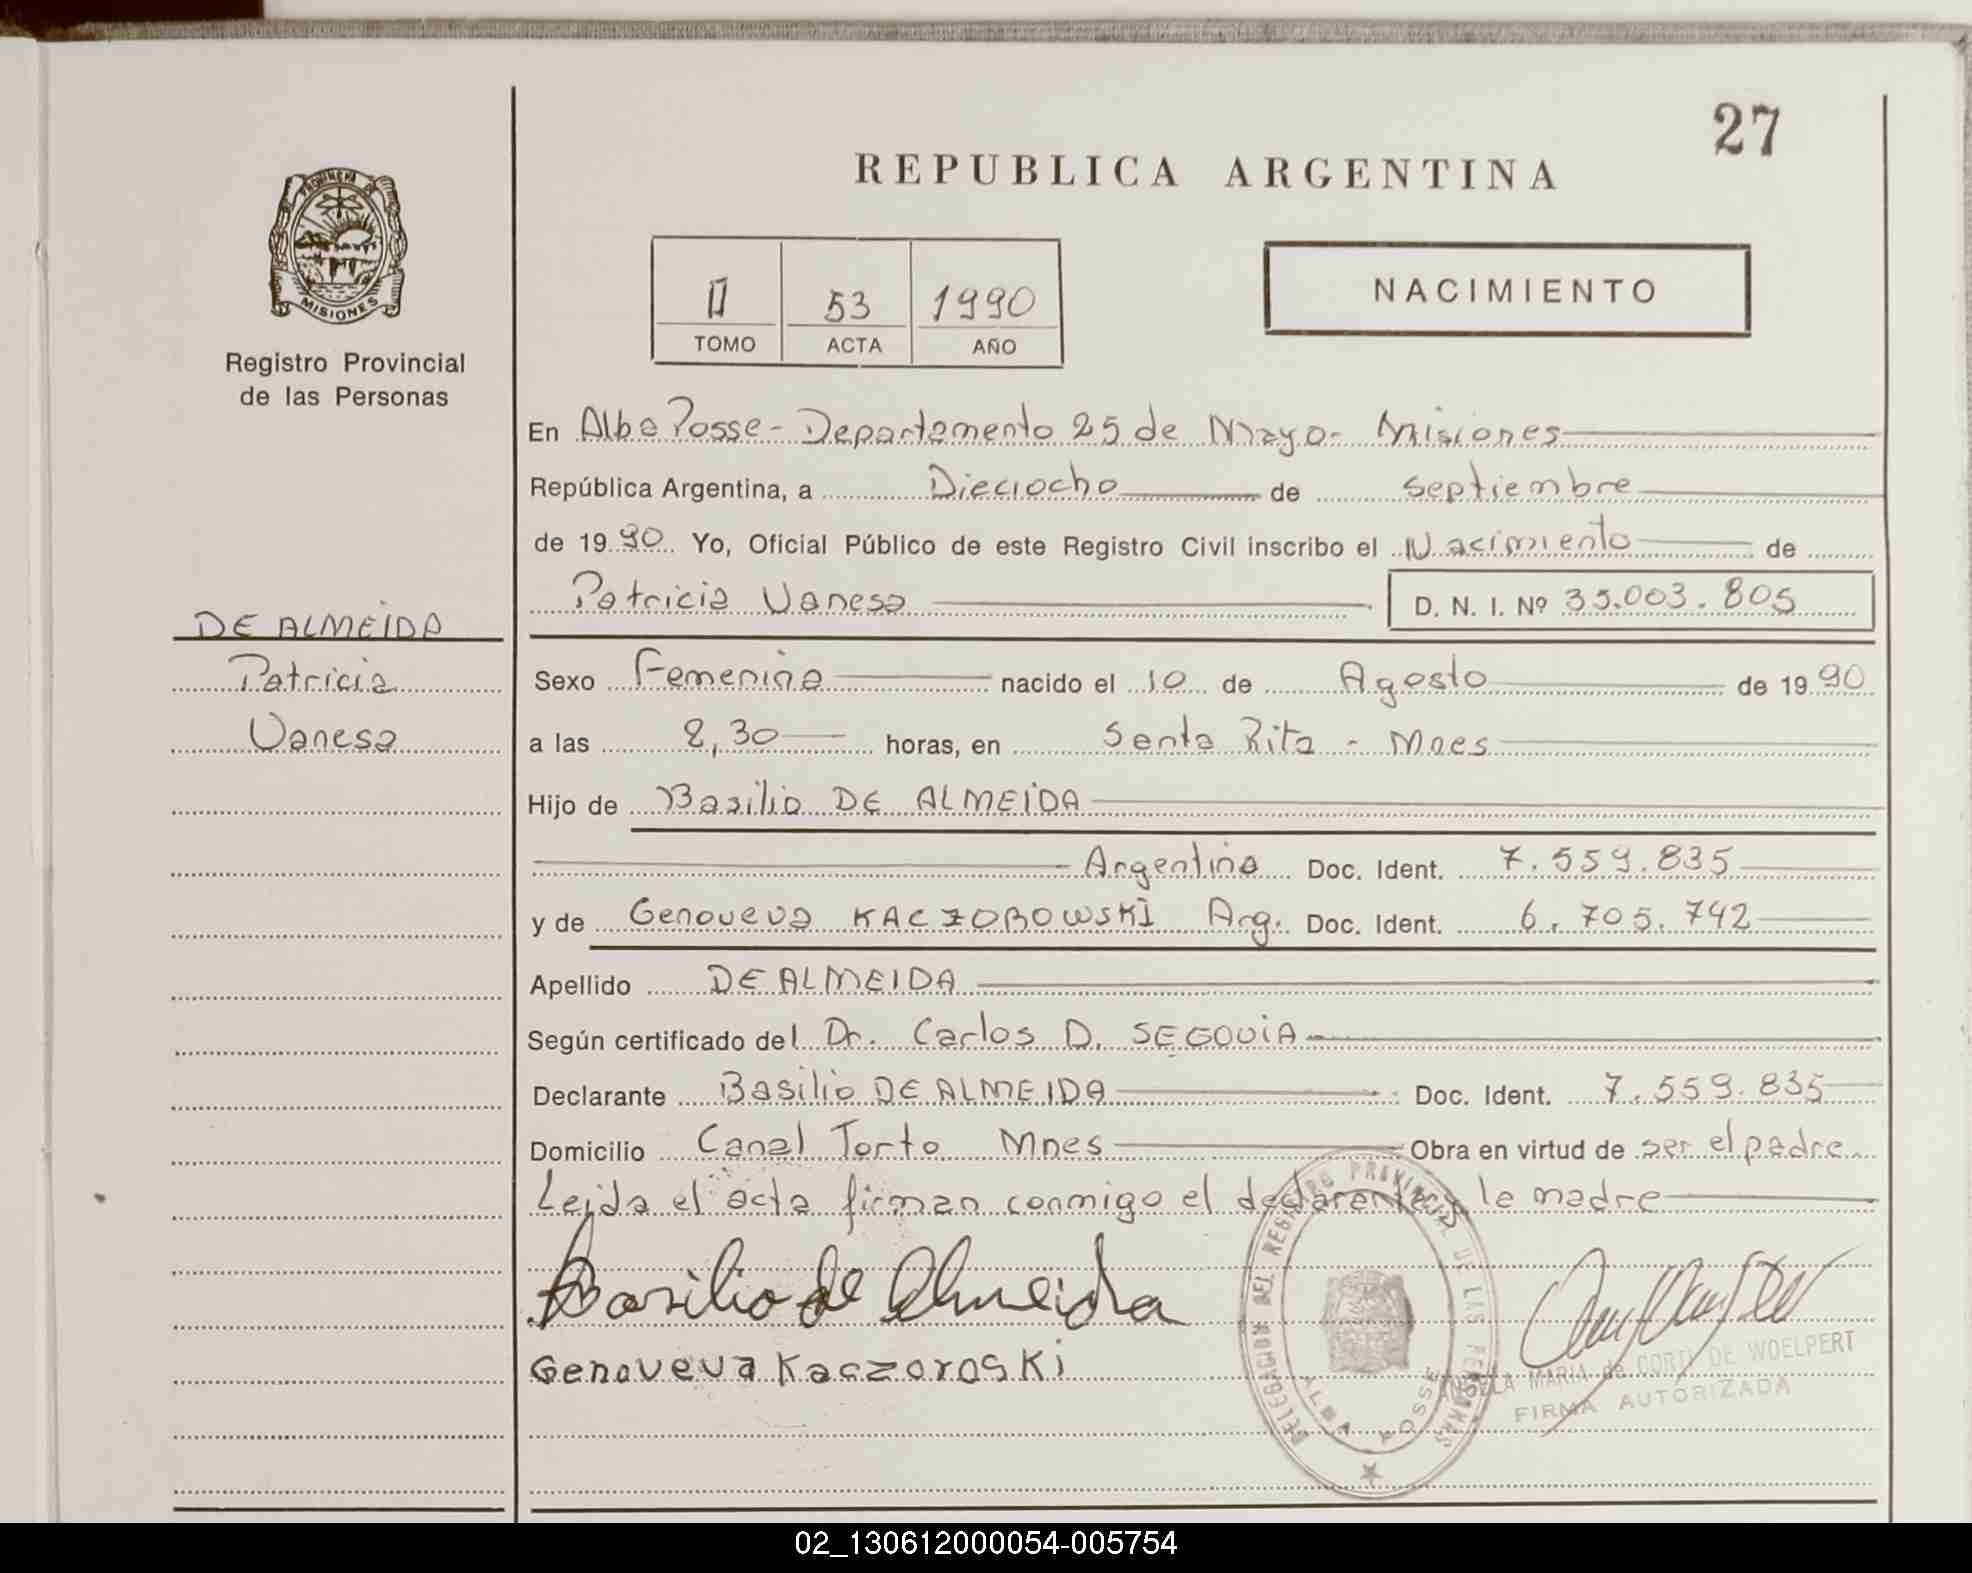 27
REPUBLICA ARGENTINA
PROVINCIA DE
MISIONES
Registro Provincial
de las Personas
II 53 1990
TOMO ACTA AÑO
NACIMIENTO
En Alba Posse - Departamento 25 de Mayo - Misiones
República Argentina, a Dieciocho de septiembre
de 1990 Yo, Oficial Público de este Registro Civil inscribo el Nacimiento de
Patricia Vanesa D. N. I. Nº 35.003.805
DE ALMEIDA
Patricia
Vanesa
Sexo Femenina nacido el 10 de Agosto de 1990
a las 8,30 horas, en Santa Rita - Mnes
Hijo de Basilio DE ALMEIDA
Argentino Doc. Ident. 7.559.835
y de Genoveva KACZOROWSKI Arg. Doc. Ident. 6.705.742
Apellido DE ALMEIDA
Según certificado del Dr. Carlos D. SEGOVIA
Declarante Basilio DE ALMEIDA Doc. Ident. 7.559.835
Domicilio Canal Torto Mnes Obra en virtud de ser el padre
Leida el acta firman conmigo el declarante y la madre
Basilio de Almeida
Genoveva Kaczoroski
DELEGACION DEL REGISTRO PROVINCIAL DE LAS PERSONAS
ALBA POSSE
ANGELA MARIA de CORTI DE WOELPERT
FIRMA AUTORIZADA
02_130612000054-005754